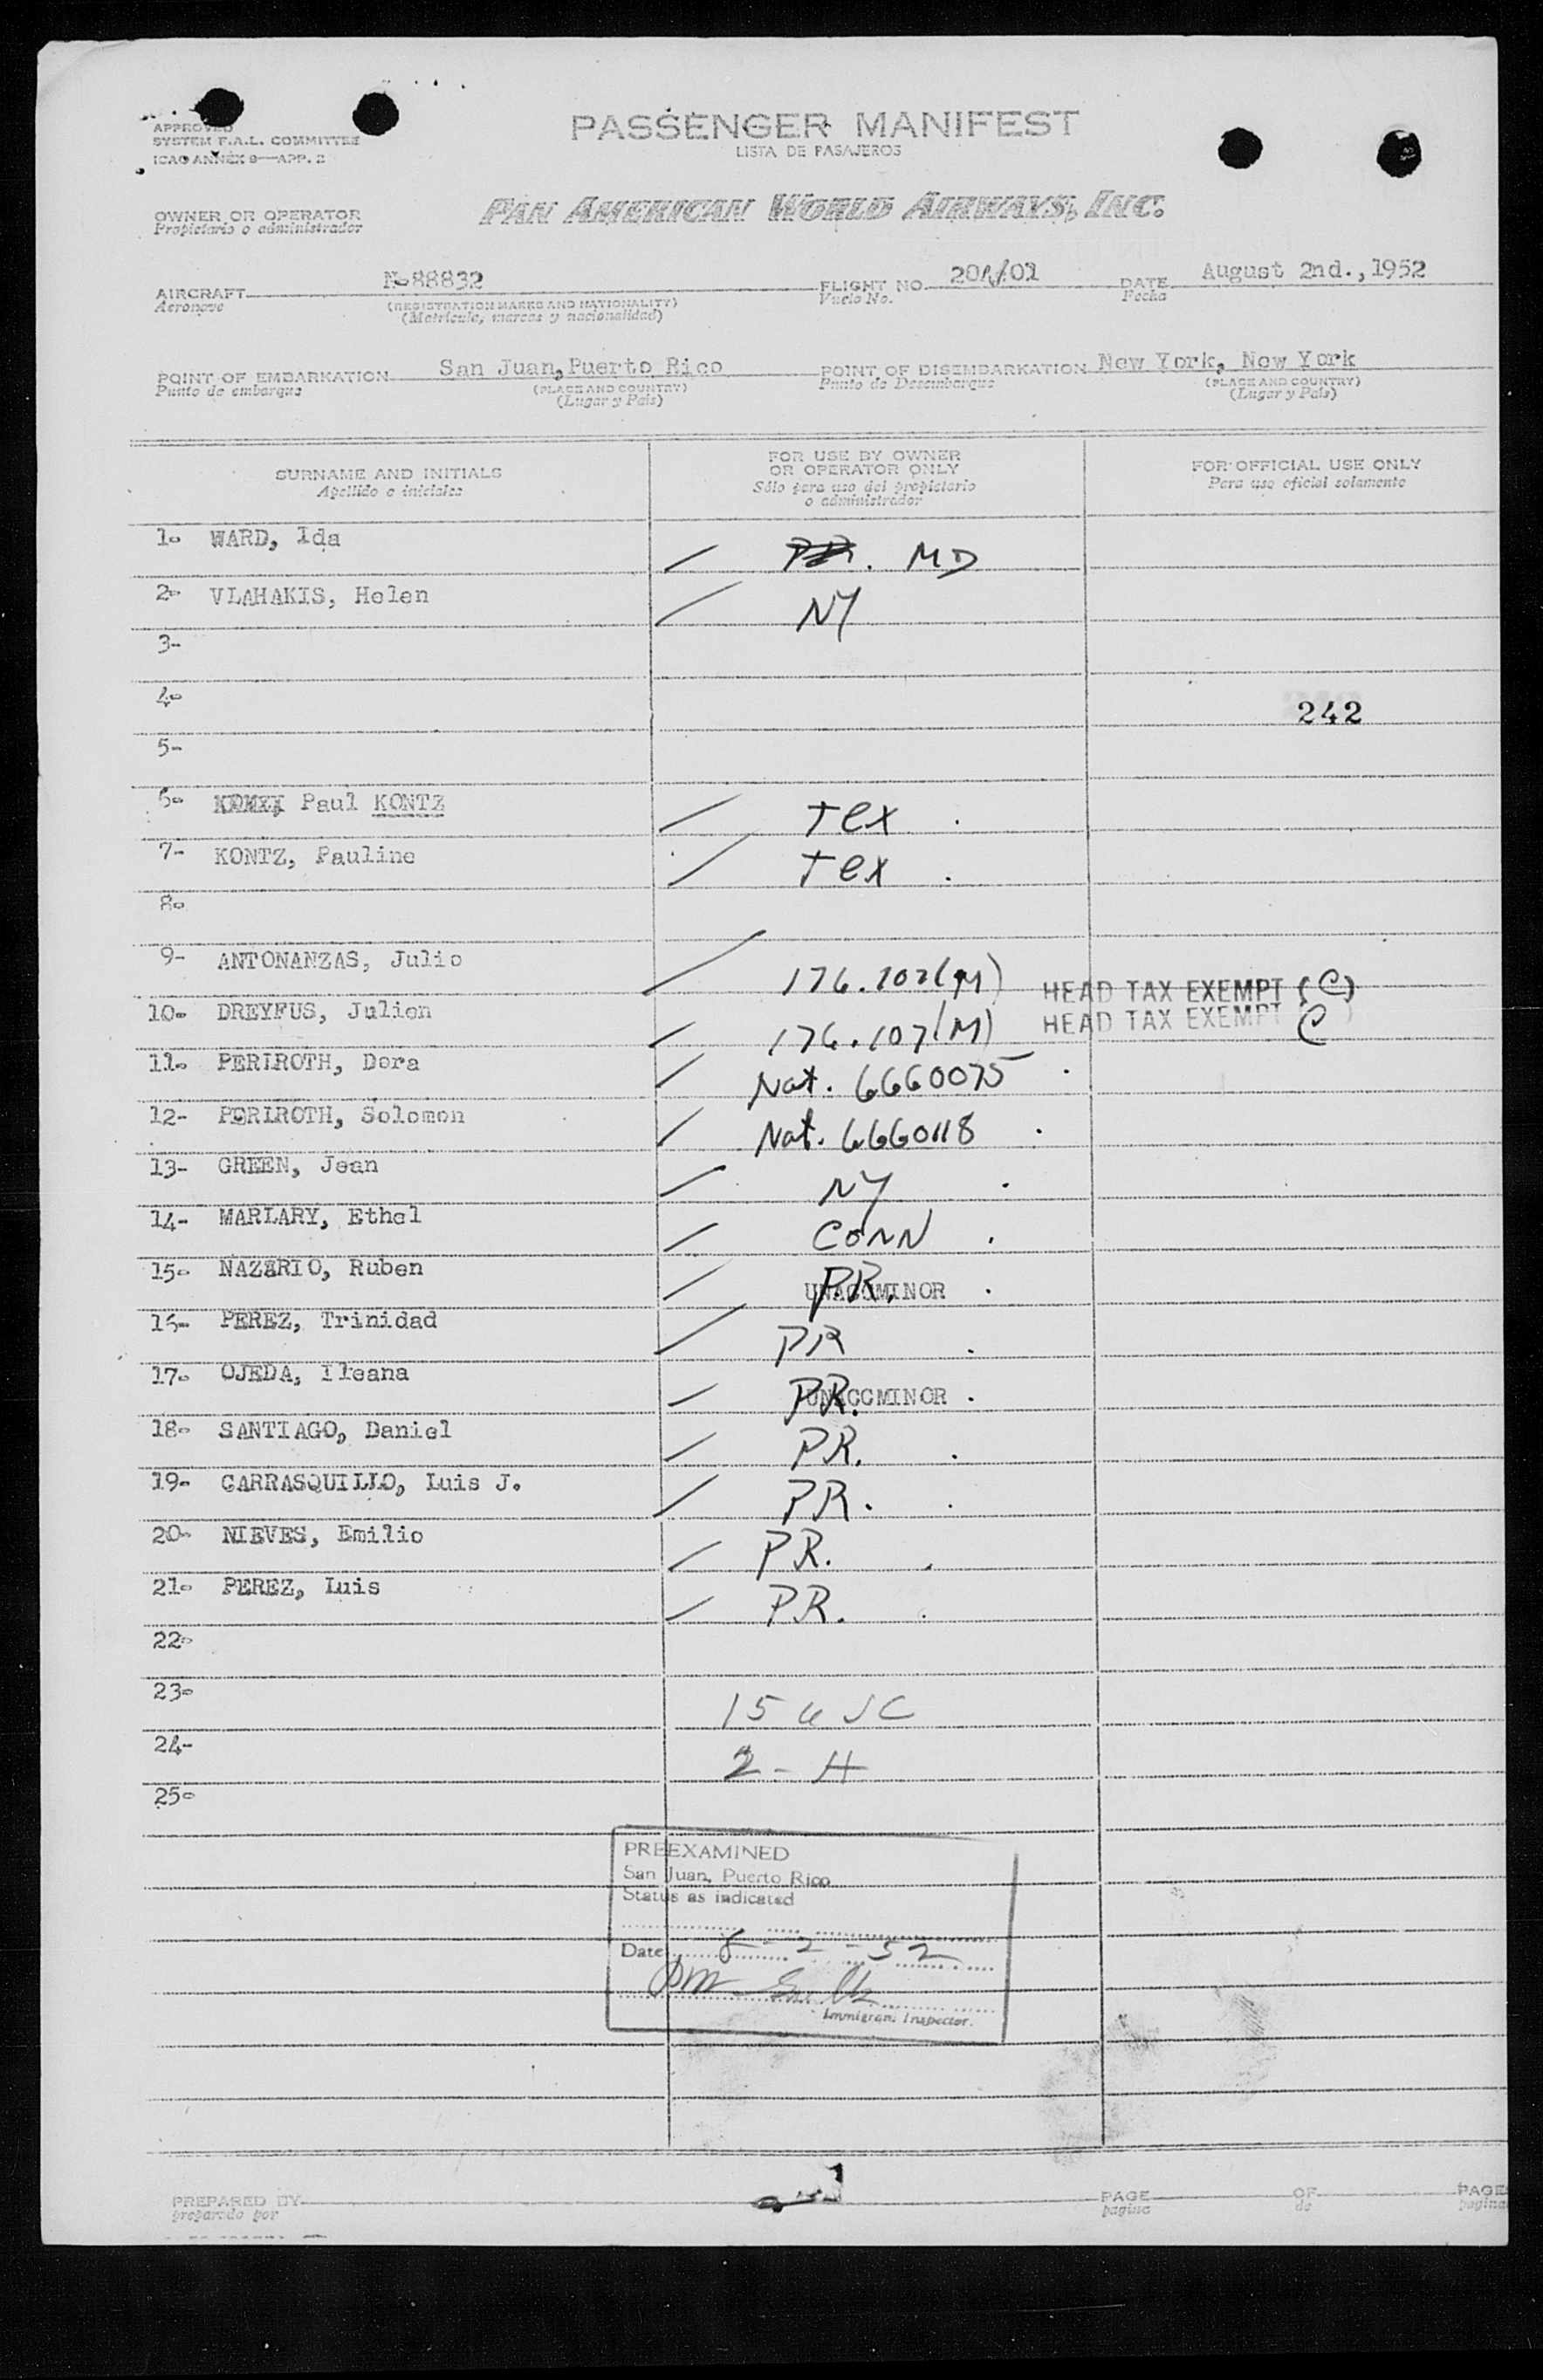 APPROVED
SYSTEM F.A.L. COMMITTEE
ICAO ANNEX 9—APP. 2
PASSENGER MANIFEST
LISTA DE PASAJEROS
OWNER OR OPERATOR
Propietario o administrador
PAN AMERICAN WORLD AIRWAYS, INC.
AIRCRAFT N-88832 FLIGHT NO. DATE August 2nd.,1952
Aeronave (REGISTRATION MARKS AND NATIONALITY) Vuelo No. Fecha
(Matrícula, marcas y nacionalidad)
POINT OF EMBARKATION San Juan,Puerto Rico POINT OF DISEMBARKATION New York, New York
Punto de embarque (PLACE AND COUNTRY) Punto de Desembarque (PLACE AND COUNTRY)
(Lugar y País) (Lugar y País)
SURNAME AND INITIALS FOR USE BY OWNER OR OPERATOR ONLY FOR OFFICIAL USE ONLY
Apellido e iniciales Sólo para uso del propietario o administrador Para uso oficial solamente
1- WARD, Ida / PR. MD
2- VLAHAKIS, Helen / NY
3-
4- 242
5-
6- Paul KONTZ / Tex .
7- KONTZ, Pauline / Tex .
8-
9- ANTONANZAS, Julio / 176.107(M) HEAD TAX EXEMPT (C)
10- DREYFUS, Julien / 176.107(M) HEAD TAX EXEMPT C
11- PERIROTH, Dora / Nat. 6660075 .
12- PERIROTH, Solomon / Nat. 6660118 .
13- GREEN, Jean / NY .
14- MARLARY, Ethel / CONN .
15- NAZARIO, Ruben / UNACCMINOR PR. .
16- PEREZ, Trinidad / PR .
17- OJEDA, Ileana / UNACCMINOR PR. .
18- SANTIAGO, Daniel / PR. .
19- CARRASQUILLO, Luis J. / PR. .
20- NIEVES, Emilio / PR. .
21- PEREZ, Luis / PR. .
22-
23- 15 USC
24- 2 - H
25-
PREEXAMINED
San Juan, Puerto Rico
Status as indicated
Date 8-2-52
Immigran. Inspector.
1
PREPARED BY PAGE OF PAGE
preparado por pagina de pagina